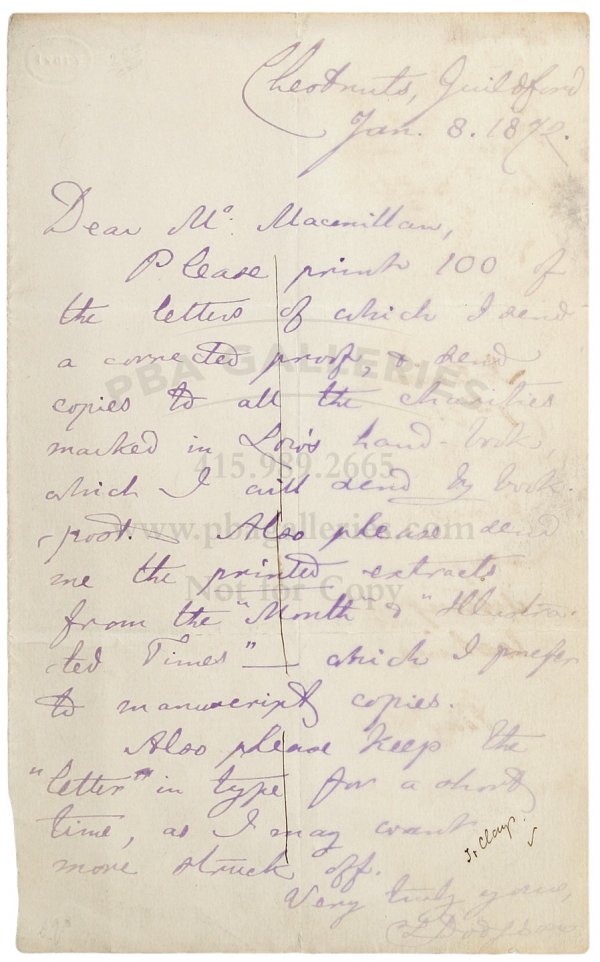 Chestnuts, Guildford
Jan. 8. 1872.
Dear Mr. Macmillan,
Please print 100 of
the letters of which I send
a corrected proof, & send
copies to all the charities
marked in Low's hand-book,
which I will send by book-
-post. — Also please send
me the printed extracts
from the "Month" & "Illustra-
-ted Times" — which I prefer
to manuscript copies.
Also please keep the
"letter" in type for a short
time, as I may want
more struck off.
Very truly yours,
C L Dodgson
PBA GALLERIES
415.989.2665
www.pbagalleries.com
Not for Copy